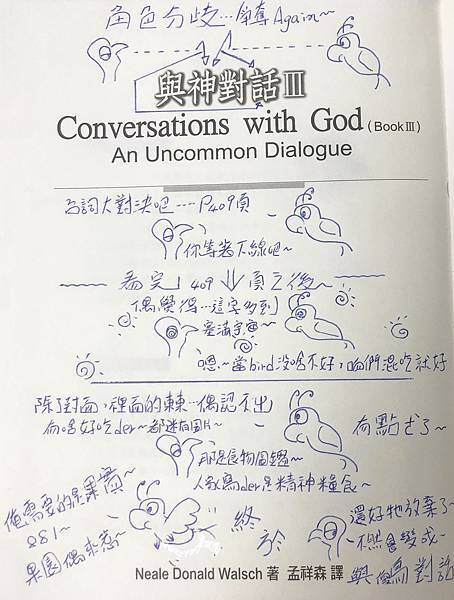 角色分歧…爭奪Again~
與神對話Ⅲ
Conversations with God (BookⅢ)
An Uncommon Dialogue
台詞大對決吧----P409頁
你等著下線吧~
看完 409 頁之後~
偶覺得…這字多到
塞滿宇宙~
嗯~當bird沒啥不好，咱們混吃就好
除了封面，裡面的 偶認不出
有啥好吃der~都沒有圖片~
有點古了~
那是食物圖鑑~
人家寫der是精神糧食~
俺需要的是果實~
881~
果園偶來惹~
終於
還好牠放棄了~
不然會變成~
與鳥對話
Neale Donald Walsch 著 孟祥森 譯